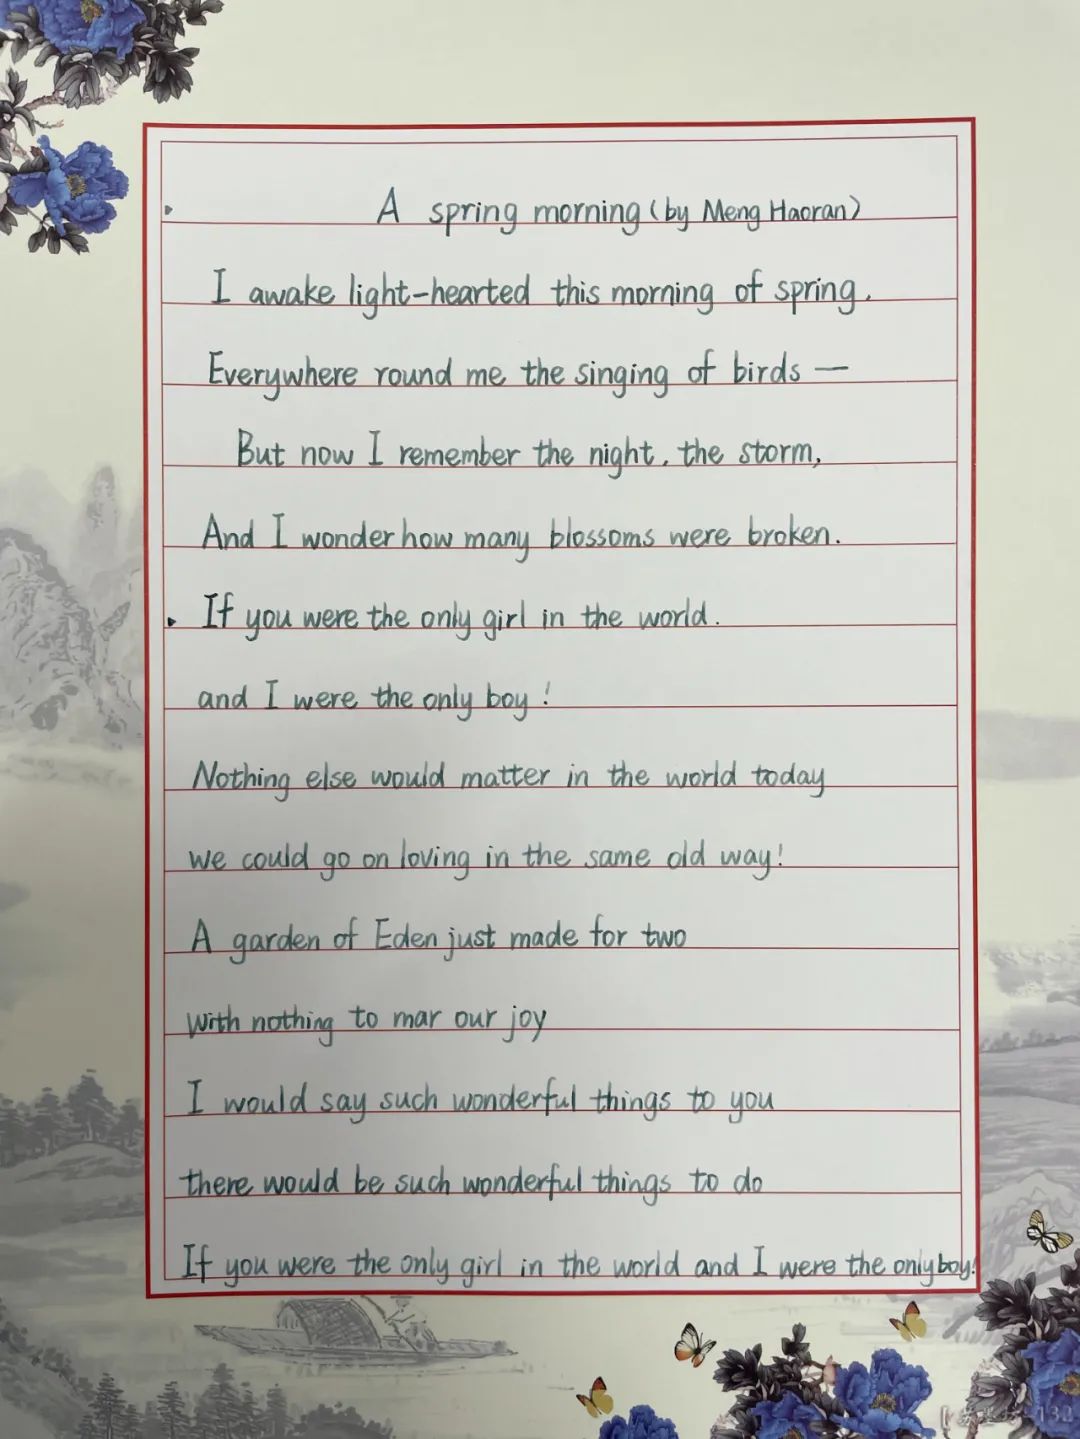 A spring morning (by Meng Haoran)
I awake light-hearted this morning of spring,
Everywhere round me the singing of birds —
But now I remember the night, the storm,
And I wonder how many blossoms were broken.
If you were the only girl in the world.
and I were the only boy!
Nothing else would matter in the world today
we could go on loving in the same old way!
A garden of Eden just made for two
with nothing to mar our joy
I would say such wonderful things to you
there would be such wonderful things to do
If you were the only girl in the world and I were the only boy!